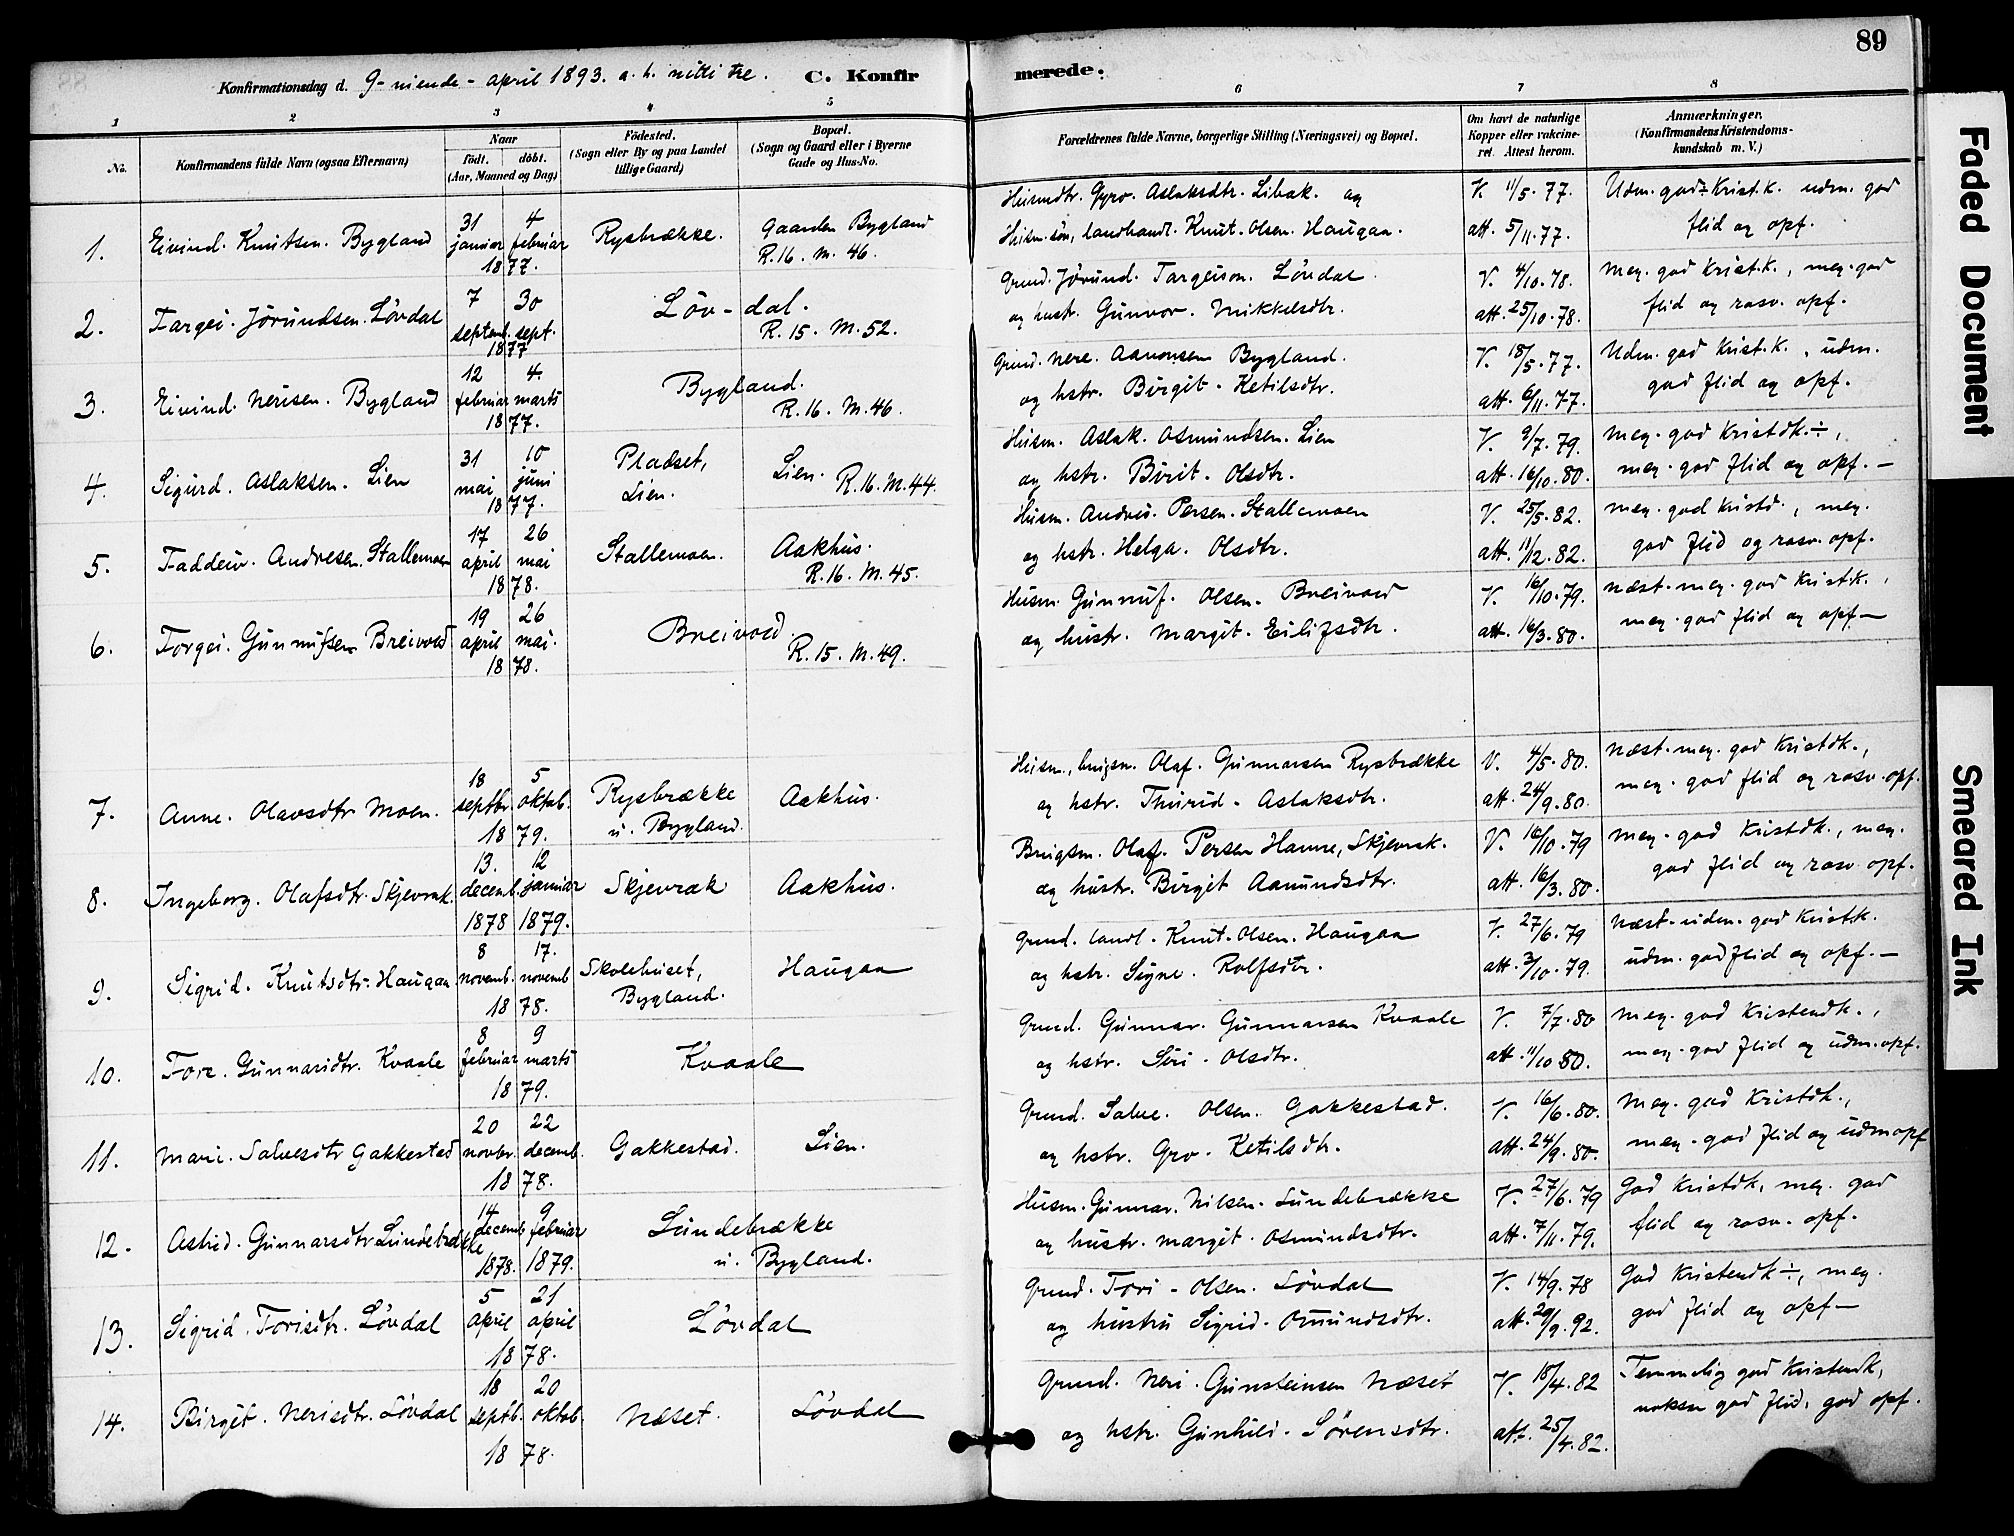 89
Konfirmationsdag d. 9-niende-april 1893. a. h. nitti tre. C. Konfirmerede.
1 2 3 4 5 6 7 8
No. Konfirmandens fulde Navn (ogsaa Efternavn) Naar födt. döbt. (Aar, Maaned og Dag) Födested. (Sogn eller By og paa Landet tillige Gaard) Bopæl. (Sogn og Gaard eller i Byerne Gade og Hus-No. Forældrenes fulde Navne, borgerlige Stilling (Næringsvei) og Bopæl. Om havt de naturlige Kopper eller vakcineret. Attest herom. Anmærkninger. (Konfirmandens Kristendomskundskab m. V.)
1. Eivind. Knutsen. Bygland 31 januar 4 februar 1877. Rysbrække. Gaarden Bygland R. 16. M. 46. Gyro. Aslaksdtr. Libak. og landhandl. Knut. Olsen. Haugaa. V. 11/5. 77. att. 5/11. 77. Udm. god Krist.k. udm. god flid og opf.
2. Targei. Jörundsen. Lövdal 7 septemb. 30 sept. 1877 Löv-dal. R. 15. M. 52. Grund. Jörund. Targeison. Lövdal. og hustr. Gunvor. Mikkelsdtr. V. 4/10. 78. att. 25/10. 78. Meg. god Krist.k., meg. god flid og rosv. opf.
3. Eivind. Nerisen. Bygland 12 februar 4. marts 1877. Bygland. R. 16. M. 46. Grund. Nere. Aanonsen Bygland. og hstr. Birgit. Ketilsdtr. V. 18/5. 77. att. 6/11. 77. Udm. god Krist.k., udm. god flid og opf.
4. Sigurd. Aslaksen. Lien 31 mai 10 juni 1877. Pladset, Lien. Lien. R. 16. M. 44. Husm. Aslak. Osmundsen. Lien og hstr. Birit. Olsdtr. V. 9/7. 79. att. 16/10. 80. Meg. god Kristdk. ÷, meg. god flid og opf. —
5. Taddeiv. Andresen. Stallemoen 17 april 26 mai 1878. Stallemoen. Aakhus. R. 16. M. 45. Husm. Andres. Persen. Stallemoen og hstr. Helga. Olsdtr. V. 25/5. 82. att. 11/12. 82. Meg. god Kristd., meg. god flid og rosv. opf.
6. Torgei. Gunnufsen Breivold 19 april 26 mai. 1878. Breivold R. 15. M. 49. Husm. Gunnuf. Olsen. Breivold og hustr. Margit. Eilifsdtr. V. 16/10. 79. att. 16/3. 80. Næst. meg. god Krist.k., meg. god flid og opf —
7. Anne. Olavsdtr Moen. 18 septbr. 5 oktob. 1879. Rysbrække u. Bygland. Aakhus. Husm., brugsm. Olaf. Gunnarsen Rysbrække og hstr. Thurid. Aslaksdtr. V. 4/5. 80. att. 24/9. 80. Næst. meg. god Kristdk., meg. god flid og rosv. opf.
8. Ingeborg. Olafsdtr. Skjevrak. 13. decemb. 1878 12 januar 1879. Skjevrak Aakhus. Brugsm. Olaf. Persen Hamre, Skjevrak. og hustr. Birgit Aanundsdtr. V. 16/10. 79 att. 16/3. 80. Meg. god Kristdk., meg. god flid og rosv. opf.
9. Sigrid. Knutsdtr. Haugaa 8 novemb. 17. novemb 1878. Skolehuset, Bygland. Haugaa Grund. landl. Knut. Olsen. Haugaa og hstr. Signe. Rolfsdtr. V. 27/6. 79 att. 3/10. 79. Næst. udm. god Krist.k. udm. god flid og opf. —
10. Tore. Gunnarsdtr. Kvaale 8 februar 9 marts 1879. Kvaale Grund. Gunnar. Gunnarsen Kvaale og hstr. Siri. Olsdtr. V. 7/7. 80 att. 11/10 80. Meg. god Kristendk., meg. god flid og udm. opf.
11. Mari. Salvesdtr Gakkestad 20 novbr. 22 decemb. 1878. Gakkestad. Lien. Grund. Salve. Olsen. Gakkestad. og hstr. Gro. Ketilsdtr. V. 16/6. 80. att. 24/9. 80. Meg. god Kristdk., meg. god flid og udm opf
12. Astrid. Gunnarsdtr Lundebrække 14 decemb 1878. 9 februar 1879. Lundebrække u. Bygland. Husm. Gunnar. Nilsen. Lundebrække og hustr. Margit. Osmundsdtr. V. 27/6. 79 att. 7/11. 79. God Kristdk, meg. god flid og rosv. opf.
13. Sigrid. Torisdtr. Lövdal 5 april 21 april 1878. Lövdal Grund. Tori. Olsen. Lövdal og hustru Sigrid. Omundsdtr. V. 14/9. 78 att. 29/9. 92. God Kristendk ÷, meg. god flid og opf —
14. Birgit. Nerisdtr. Lövdal 18 septb. 20 oktob. 1878. Næset. Lövdal Grund. Neri. Gunsteinsen Næset og hstr. Gunhild. Sörensdtr. V. 18/4. 82 att. 25/4. 82. Temmelig god Kristendk, nokså god flid, god opf.
Faded Document
Smeared Ink